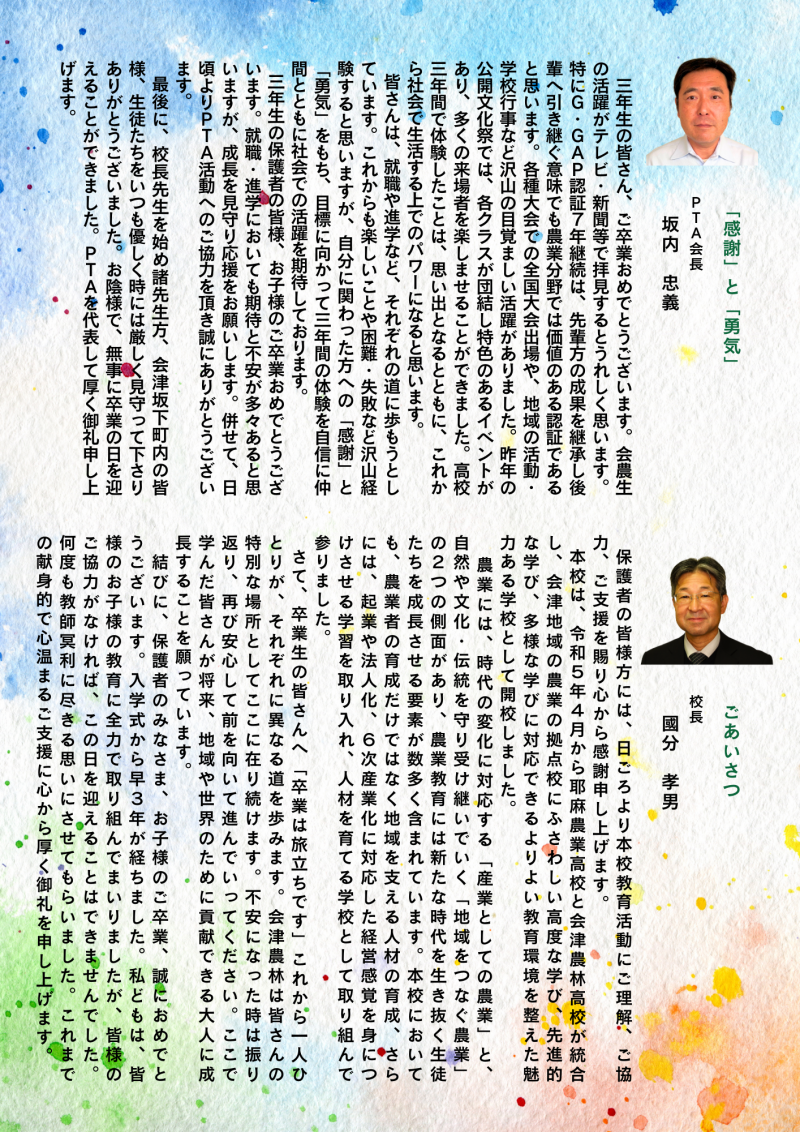 「感謝」と「勇気」
PTA会長
坂内　忠義
　三年生の皆さん、ご卒業おめでとうございます。会農生
の活躍がテレビ・新聞等で拝見するとうれしく思います。
特にG・GAP認証7年継続は、先輩方の成果を継承し後
輩へ引き継ぐ意味でも農業分野では価値のある認証である
と思います。各種大会での全国大会出場や、地域の活動・
学校行事など沢山の目覚ましい活躍がありました。昨年の
公開文化祭では、各クラスが団結し特色のあるイベントが
あり、多くの来場者を楽しませることができました。高校
三年間で体験したことは、思い出となるとともに、これか
ら社会で生活する上でのパワーになると思います。
　皆さんは、就職や進学など、それぞれの道に歩もうとし
ています。これからも楽しいことや困難・失敗など沢山経
験すると思いますが、自分に関わった方への「感謝」と
「勇気」をもち、目標に向かって三年間の体験を自信に仲
間とともに社会での活躍を期待しております。
　三年生の保護者の皆様、お子様のご卒業おめでとうござ
います。就職・進学においても期待と不安が多々あると思
いますが、成長を見守り応援をお願いします。併せて、日
頃よりPTA活動へのご協力を頂き誠にありがとうござい
ます。
　最後に、校長先生を始め諸先生方、会津坂下町内の皆
様、生徒たちをいつも優しく時には厳しく見守って下さり
ありがとうございました。お陰様で、無事に卒業の日を迎
えることができました。PTAを代表して厚く御礼申し上
げます。
ごあいさつ
校長
國分　孝男
　保護者の皆様方には、日ごろより本校教育活動にご理解、ご協
力、ご支援を賜り心から感謝申し上げます。
　本校は、令和5年4月から耶麻農業高校と会津農林高校が統合
し、会津地域の農業の拠点校にふさわしい高度な学び、先進的
な学び、多様な学びに対応できるよりよい教育環境を整えた魅
力ある学校として開校しました。
　農業には、時代の変化に対応する「産業としての農業」と、
自然や文化・伝統を守り受け継いでいく「地域をつなぐ農業」
の2つの側面があり、農業教育には新たな時代を生き抜く生徒
たちを成長させる要素が数多く含まれています。本校において
も、農業者の育成だけではなく地域を支える人材の育成、さら
には、起業や法人化、6次産業化に対応した経営感覚を身につ
けさせる学習を取り入れ、人材を育てる学校として取り組んで
参りました。
　さて、卒業生の皆さんへ「卒業は旅立ちです」これから一人ひ
とりが、それぞれに異なる道を歩みます。会津農林は皆さんの
特別な場所としてここに在り続けます。不安になった時は振り
返り、再び安心して前を向いて進んでいってください。ここで
学んだ皆さんが将来、地域や世界のために貢献できる大人に成
長することを願っています。
　結びに、保護者のみなさま、お子様のご卒業、誠におめでと
うございます。入学式から早3年が経ちました。私どもは、皆
様のお子様の教育に全力で取り組んでまいりましたが、皆様の
ご協力がなければ、この日を迎えることはできませんでした。
何度も教師冥利に尽きる思いにさせてもらいました。これまで
の献身的で心温まるご支援に心から厚く御礼を申し上げます。